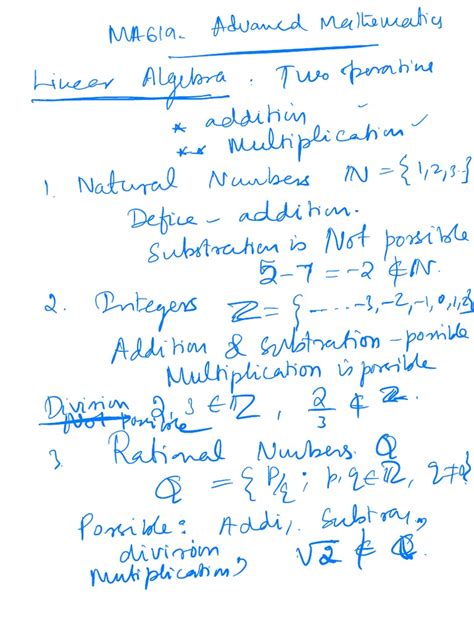 MA619- Advanced Mathematics
Linear Algebra. Two operations
* addition
** Multiplication
1. Natural Numbers ℕ = {1,2,3.}
Define – addition.
Substration is Not possible
5-7 = -2 ∉ ℕ.
2. Integers ℤ = {-----3,-2,-1,0,1,2}
Addition & Substration – possible
Multiplication is possible
Division 2, 3 ∈ ℤ, 2/3 ∉ ℤ.
Not possible
3. Rational Numbers. ℚ
ℚ = {p/q ; p, q ∈ ℤ, q ≠ 0}
Possible: Addi,. Substra,
division √2 ∉ ℚ.
Multiplication,